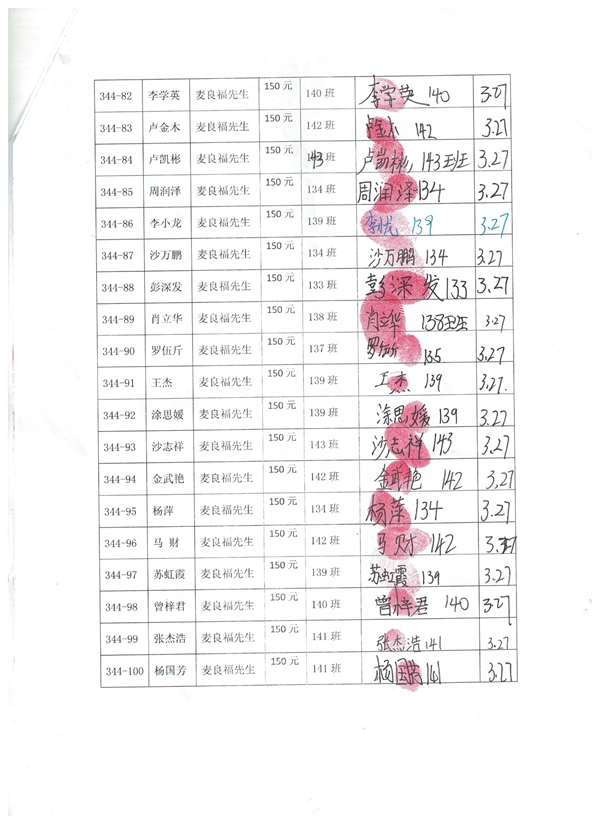 344-82 李学英 麦良福先生 150 元 140 班 李学英 140 3.27
344-83 卢金木 麦良福先生 150 元 142 班 卢金木 142 3.27
344-84 卢凯彬 麦良福先生 150 元 143 班 卢凯彬 143班 3.27
344-85 周润泽 麦良福先生 150 元 134 班 周润泽 134 3.27
344-86 李小龙 麦良福先生 150 元 139 班 李小龙 139 3.27
344-87 沙万鹏 麦良福先生 150 元 134 班 沙万鹏 134 3.27
344-88 彭深发 麦良福先生 150 元 133 班 彭深发 133 3.27
344-89 肖立华 麦良福先生 150 元 138 班 肖立华 138班 3.27
344-90 罗伍斤 麦良福先生 150 元 137 班 罗伍斤 135 3.27
344-91 王杰 麦良福先生 150 元 139 班 王杰 139 3.27.
344-92 涂思媛 麦良福先生 150 元 139 班 涂思媛 139 3.27
344-93 沙志祥 麦良福先生 150 元 143 班 沙志祥 143 3.27
344-94 金武艳 麦良福先生 150 元 142 班 金武艳 142 3.27
344-95 杨萍 麦良福先生 150 元 134 班 杨萍 134 3.27
344-96 马 财 麦良福先生 150 元 142 班 马财 142 3.27
344-97 苏虹霞 麦良福先生 150 元 139 班 苏虹霞 139 3.27
344-98 曾梓君 麦良福先生 150 元 140 班 曾梓君 140 3.27
344-99 张杰浩 麦良福先生 150 元 141 班 张杰浩 141 3.27
344-100 杨国芳 麦良福先生 150 元 141 班 杨国芳 141 3.27